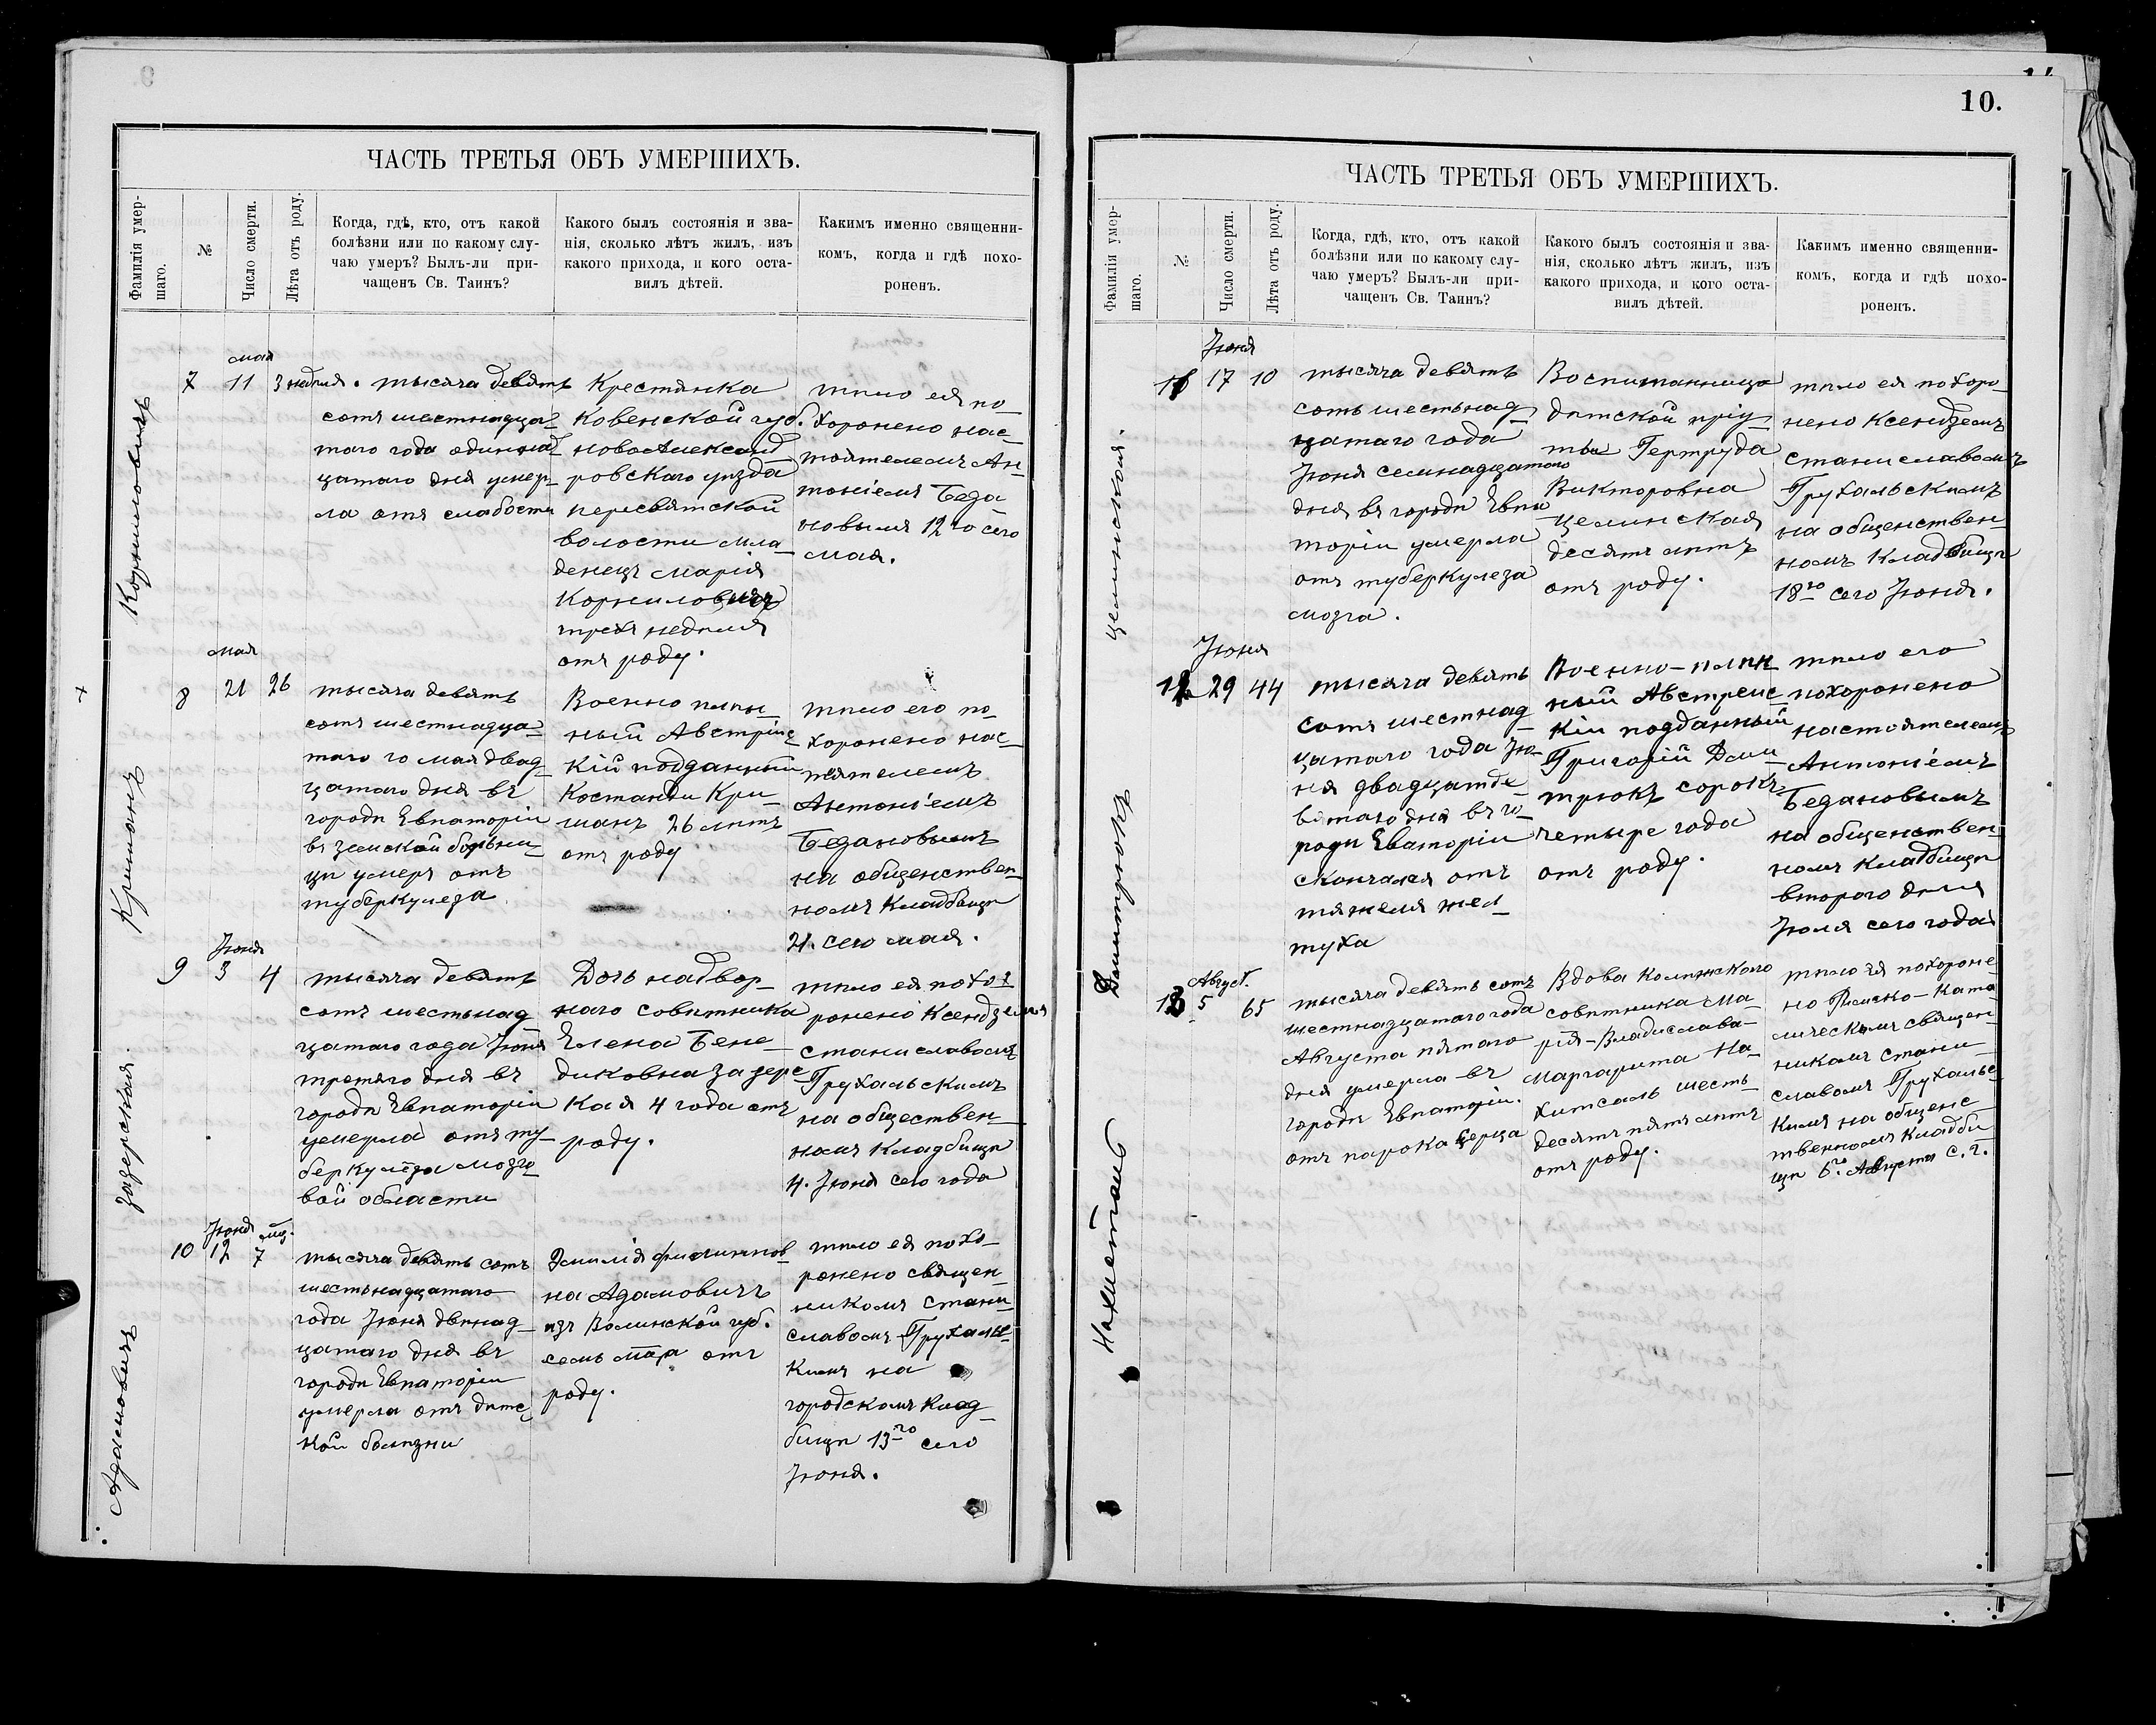 ЧАСТЬ ТРЕТЬЯ ОБЪ УМЕРШИХЪ.
Фамилія умер-
шаго.
№
Число смерти.
Лѣта отъ роду.
Когда, гдѣ, кто, отъ какой
болѣзни или по какому слу-
чаю умеръ? Былъ-ли при-
чащенъ Св. Таинъ?
Какого былъ состоянія и зва-
нія, сколько лѣтъ жилъ, изъ
какого прихода, и кого оста-
вилъ дѣтей.
Какимъ именно священни-
комъ, когда и гдѣ похо-
роненъ.
Корниловичъ
мая
7 11 3 недѣля.
тысяча девять
сотъ шестнадца-
того года одиннад-
цатаго дня умер-
ла отъ слабости
Крестянка
Ковенской губ.
новоАлександ
ровского уѣзда
пересвятской
волости мла-
денецъ Марія
Корниловичъ
трехъ недѣля
отъ роду.
тѣло ея по-
хоронено нас-
тоятелемъ Ан-
тоніемъ Беда
новымъ 12 го сего
мая.
Кришанъ
мая
8 21 26
тысяча девять
сотъ шестнадца-
таго го мая двад-
цатаго дня въ
городѣ Евпаторіи
въ земской больни-
цѣ умеръ отъ
туберкулеза
Военно плѣн-
ный Австрійс-
кій подданный
Костанди Кри-
шанъ 26 лѣтъ
отъ роду
тѣло его по-
хоронено нас-
тятелемъ
Антоніемъ
Бедановымъ
на общенствен-
номъ Кладбищѣ
21. сего мая.
Зазерская.
Іюня
9 3 4
тысяча девять
сотъ шестьнад
цатаго года Іюня
третяго дня въ
городѣ Евпаторіи
умерла отъ ту-
беркулеза мозго
вой области
Дочь надвор-
наго совѣтника
Елена Бене-
диковна Зазерс-
кая 4 года отъ
роду.
тѣло ея похо-
ронено Ксендземъ
Станиславомъ
Грухальскимъ
на обществен-
номъ Кладбищѣ
4. Іюня сего года
Адамовичъ
Іюня мѣс.
10 12 7
тысяча девять сотъ
шестьнадцатаго
года Іюня двѣнад-
цатаго дня въ
городѣ Евпаторіи
умерла отъ дѣтс-
кой болѣзни
Эмилія Филиппов
на Адамовичъ
изъ Волинской губ.
семь мѣц. отъ
роду.
тѣло ея похо-
ронено священ-
никомъ Стани-
славомъ Грухальс-
кимъ на
городскомъ Клад-
бищѣ 13 го сего
Іюня.
10.
ЧАСТЬ ТРЕТЬЯ ОБЪ УМЕРШИХЪ.
Фамилія умер-
шаго.
№
Число смерти.
Лѣта отъ роду.
Когда, гдѣ, кто, отъ какой
болѣзни или по какому слу-
чаю умеръ? Былъ-ли при-
чащенъ Св. Таинъ?
Какого былъ состоянія и зва-
нія, сколько лѣтъ жилъ, изъ
какого прихода, и кого оста-
вилъ дѣтей.
Какимъ именно священни-
комъ, когда и гдѣ похо-
роненъ.
Целинская.
Іюня
11 17 10
тысяча девять
сотъ шестьнад-
цатаго года
Іюня семнадцатаго
дня въ городѣ Евпа
торіи умерла
отъ туберкулеза
мозга.
Воспитанница
дѣтской прію-
ты Гертруда
Викторовна
Целинская
десять лѣтъ
отъ роду.
тѣло ея похоро-
нено Ксендземъ
Станиславомъ
Грухальскимъ
на общенствен-
номъ Кладбищѣ
18 го сего Іюня.
Дмитрюкъ
Іюня
12 29 44
тысяча девять
сотъ шестнад-
цатаго года Ію-
ня двадцатде-
вятаго дня въ го-
роди Еваторіи
скончался отъ
тяжеля жел-
туха
Военно-плѣн-
ный Австрейс-
кій подданный
Григорій Дми-
трюкъ сорокъ
четыре года
отъ роду.
тѣло его
похоронено
настоятелемъ
Антоніемъ
Бедановымъ
на общенствен-
номъ кладбищѣ
второго дня
Іюля сего года
Нахметаль
Август.
13 5 65
тысяча девять сотъ
шестнадцатаго года
Августа пятаго
дня умерла въ
городѣ Евпаторіи.
отъ порока серца
Вдова Колежского
совѣтника Ма-
рія-Владислава-
Маргарита На-
хитсаль шесть
десять пять лѣтъ
отъ роду.
тѣло ея похороне-
но Римско-Като-
лическимъ священ-
никомъ Стани-
славомъ Грухальс-
кимъ на общенс
твенномъ Кладби
щѣ 6 го Августа с. г.